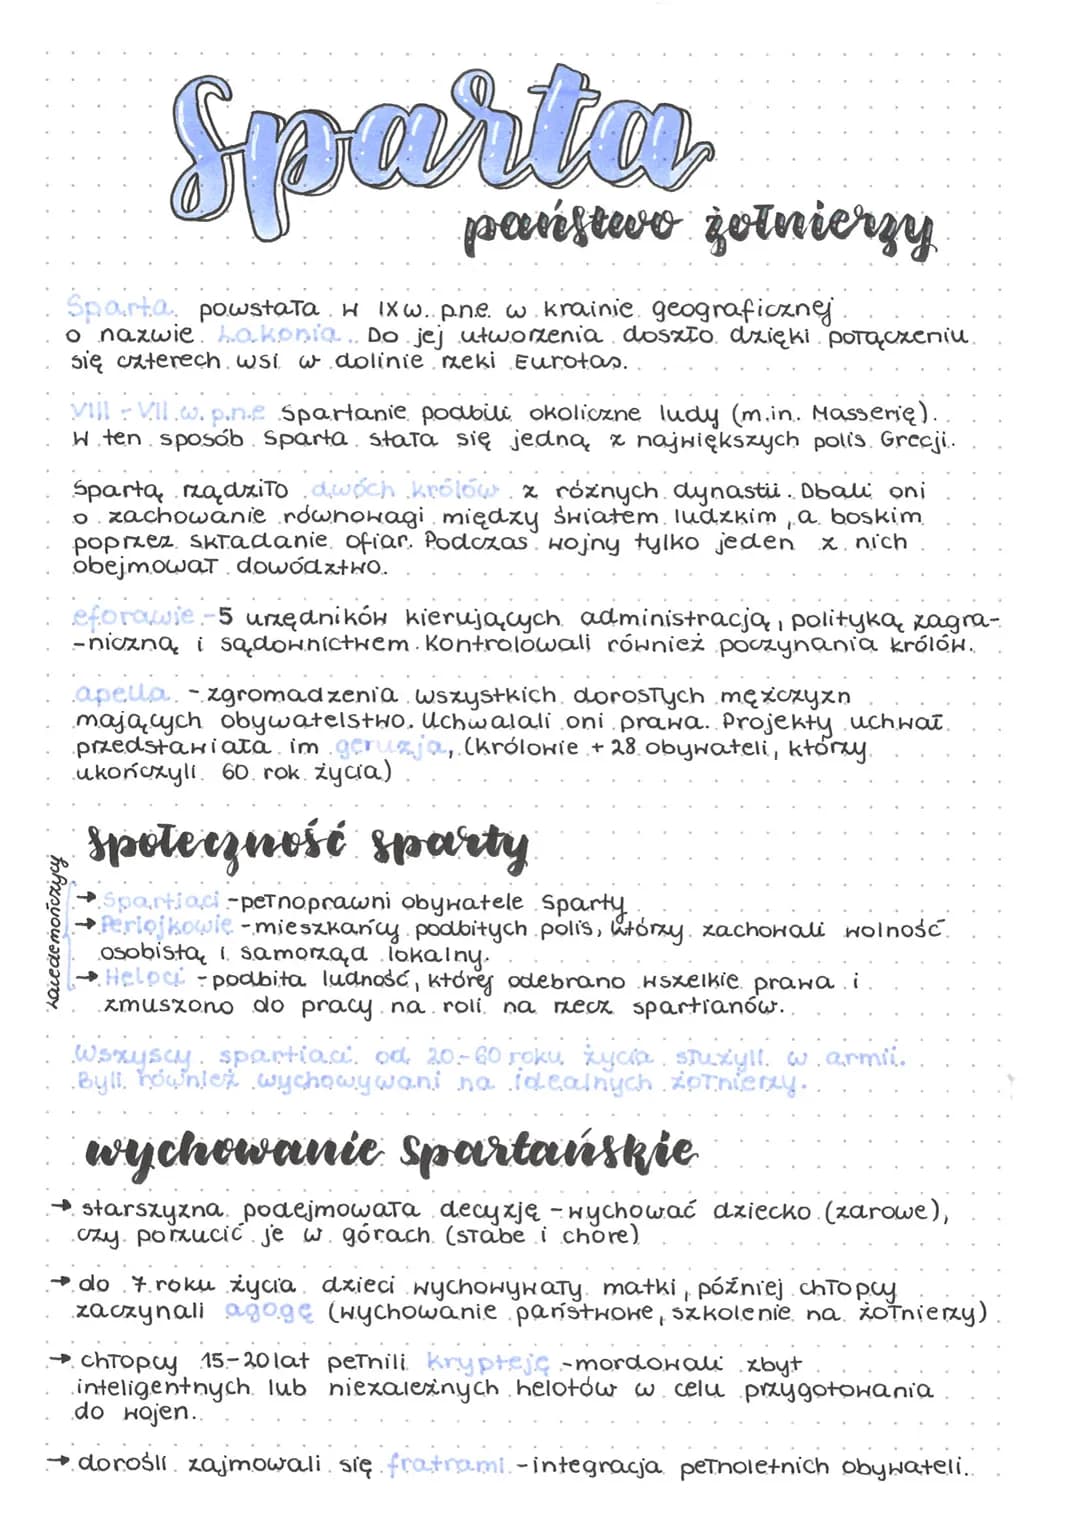 Sparta
państwo żołnierzy
Sparta powstała w IX w. p.n.e. w krainie geograficznej
o nazwie Lakonia. Do jej utworzenia doszło dzięki połączeniu
się czterech wsi w dolinie rzeki Eurotas.
VIII - VII w. p.n.e Spartanie podbili okoliczne ludy (m.in. Massenię).
W ten sposób Sparta stała się jedną z największych polis Grecji.
Spartą rządziło dwóch królów z różnych dynastii. Dbali oni
o zachowanie równowagi między światem ludzkim, a boskim
poprzez składanie ofiar. Podczas wojny tylko jeden z nich
obejmował dowództwo.
eforawie - 5 urzędników kierujących administracją, polityką zagra-
-niczną i sądownictwem. Kontrolowali również poczynania królów.
apella - zgromadzenia wszystkich dorosłych mężczyzn
mających obywatelstwo. Uchwalali oni prawa. Projekty uchwał
przedstawiała im geruzja, (królowie + 28 obywateli, którzy
ukończyli 60 rok życia)
społeczność sparty
Lacedemończycy
→ Spartiaci - pełnoprawni obywatele Sparty
→ Periojkowie - mieszkańcy podbitych polis, którzy zachowali wolność
osobistą i samorząd lokalny.
→ Heloci - podbita ludność, której odebrano wszelkie prawa i
zmuszono do pracy na roli na rzecz spartianów.
Wszyscy spartiaci od 20-60 roku życia służyli w armii.
Byli również wychowywani na idealnych żołnierzy.
wychowanie spartańskie
→ starszyzna podejmowała decyzję - wychować dziecko (zdrowe),
czy porzucić je w górach (słabe i chore)
→ do 7 roku życia dzieci wychowywały matki, później chłopcy
zaczynali agogę (wychowanie państwowe, szkolenie na żołnierzy)
→ chłopcy 15-20 lat pełnili krypteję - mordowali zbyt
inteligentnych lub niezależnych helotów w celu przygotowania
do wojen.
→ dorośli zajmowali się fratrami - integracja pełnoletnich obywateli.